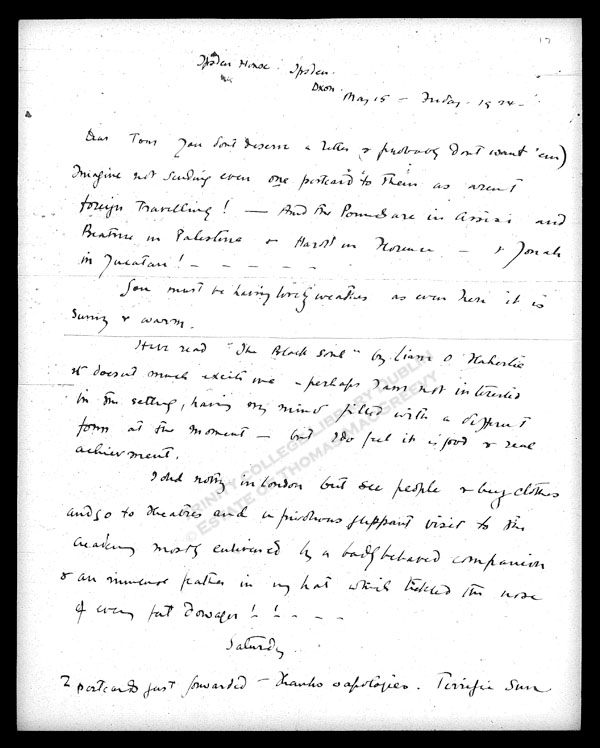 17
Ipsden House. Ipsden.
Oxon.
May 15 – Friday. 1924 –
Dear Tom you don't deserve a letter & probably don't want 'em)
Imagine not sending even one postcard to them as aren't
foreign travelling! — And the Pounds are in Assisi and
Beatrice in Palestine & Harold in Florence — & Jonah
in Yucatan! – – – – –
You must be having lovely weather as even here it is
sunny & warm.
Have read "The Black Soul" by Liam O'Flahertie
It doesn't much excite me – perhaps I am not interested
in the setting, having my mind filled with a different
form at the moment – but I do feel it is good & real
achievement.
I did nothing in London but see people & buy clothes
and go to theatres and a frivolous flippant visit to the
Academy mostly enlivened by a badly behaved companion
& an immense feather in my hat which tickled the nose
of every fat Dowager! ! – – –
Saturday
2 postcards just forwarded – thanks & apologies. Terrific Sun
© TRINITY COLLEGE LIBRARY DUBLIN
ESTATE OF THOMAS MACGREEVY